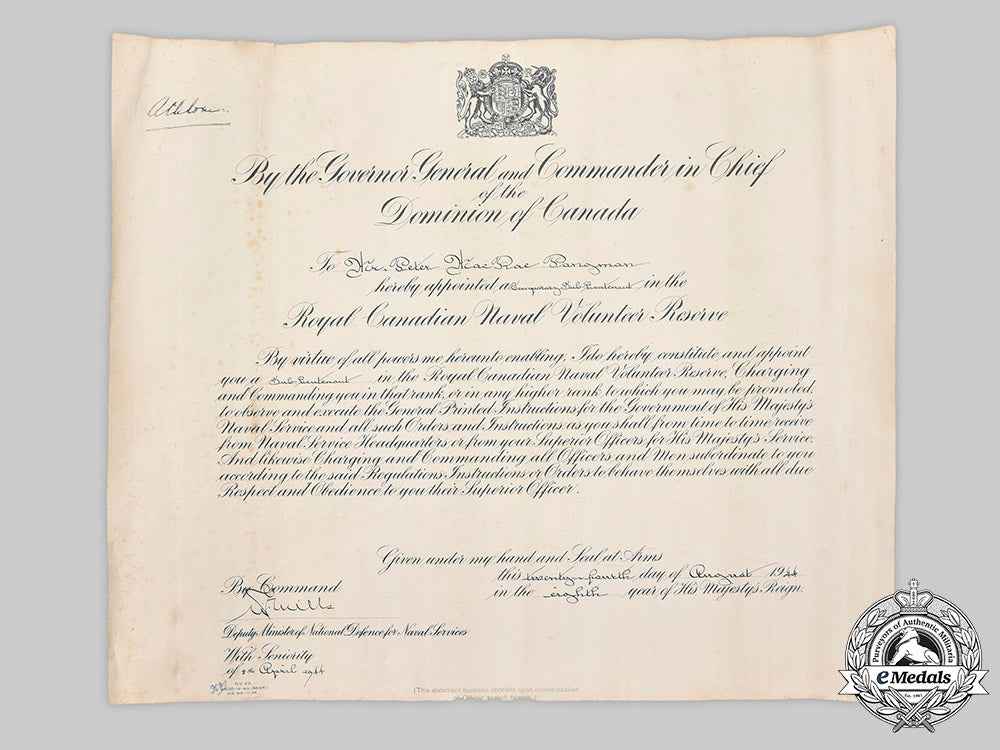 Athlone.
By the Governor General and Commander in Chief
of the
Dominion of Canada
To Mr. Peter MacRae Pangman
hereby appointed a Temporary Sub-Lieutenant in the
Royal Canadian Naval Volunteer Reserve
By virtue of all powers me hereunto enabling, I do hereby constitute and appoint
you a Sub-Lieutenant in the Royal Canadian Naval Volunteer Reserve, Charging
and Commanding you in that rank, or in any higher rank to which you may be promoted,
to observe and execute the General Printed Instructions for the Government of His Majesty's
Naval Service and all such Orders and Instructions as you shall from time to time receive
from Naval Service Headquarters or from your Superior Officers for His Majesty's Service.
And likewise Charging and Commanding all Officers and Men subordinate to you
according to the said Regulations Instructions or Orders to behave themselves with all due
Respect and Obedience to you their Superior Officer.
Given under my hand and Seal at Arms
this twenty-fourth day of August 1944
in the eighth year of His Majesty's Reign.
By Command
Deputy Minister of National Defence for Naval Services
With Seniority
of 9th April 1944
(This document becomes obsolete upon demobilization
Purveyors of Authentic Militaria
eMedals